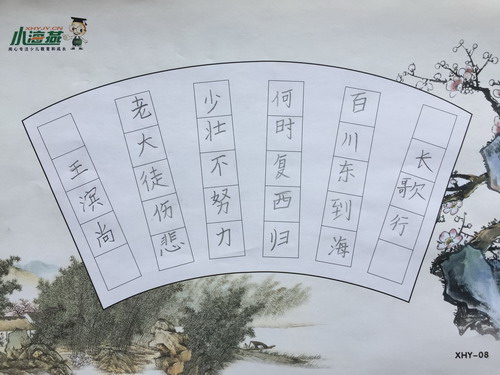 XHYJY.CN
小海燕
用心专注少儿教育和成长
长歌行
百川东到海
何时复西归
少壮不努力
老大徒伤悲
王滨尚
XHY-08